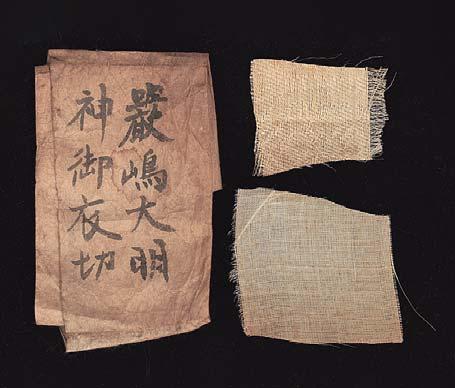 巖嶋大明
神御衣切